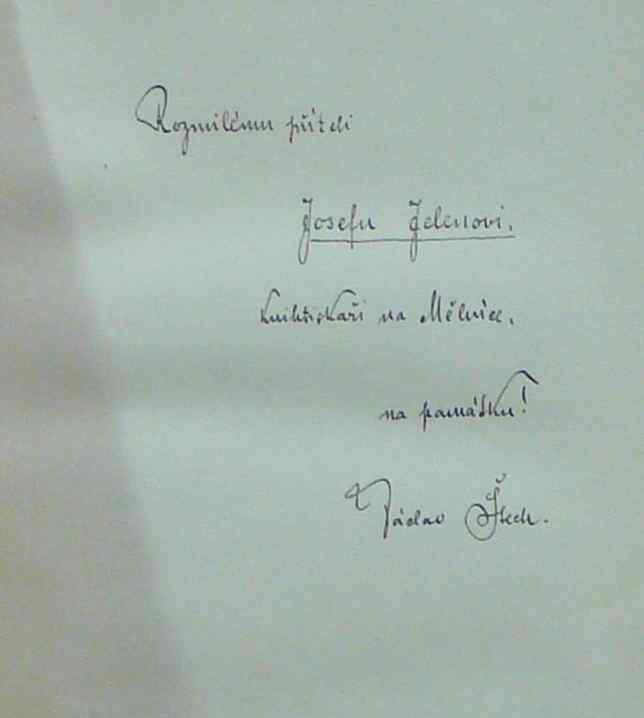 Rozmilému příteli
Josefu Jelenovi,
knihtiskaři na Mělníce,
na památku!
Václav Štech.